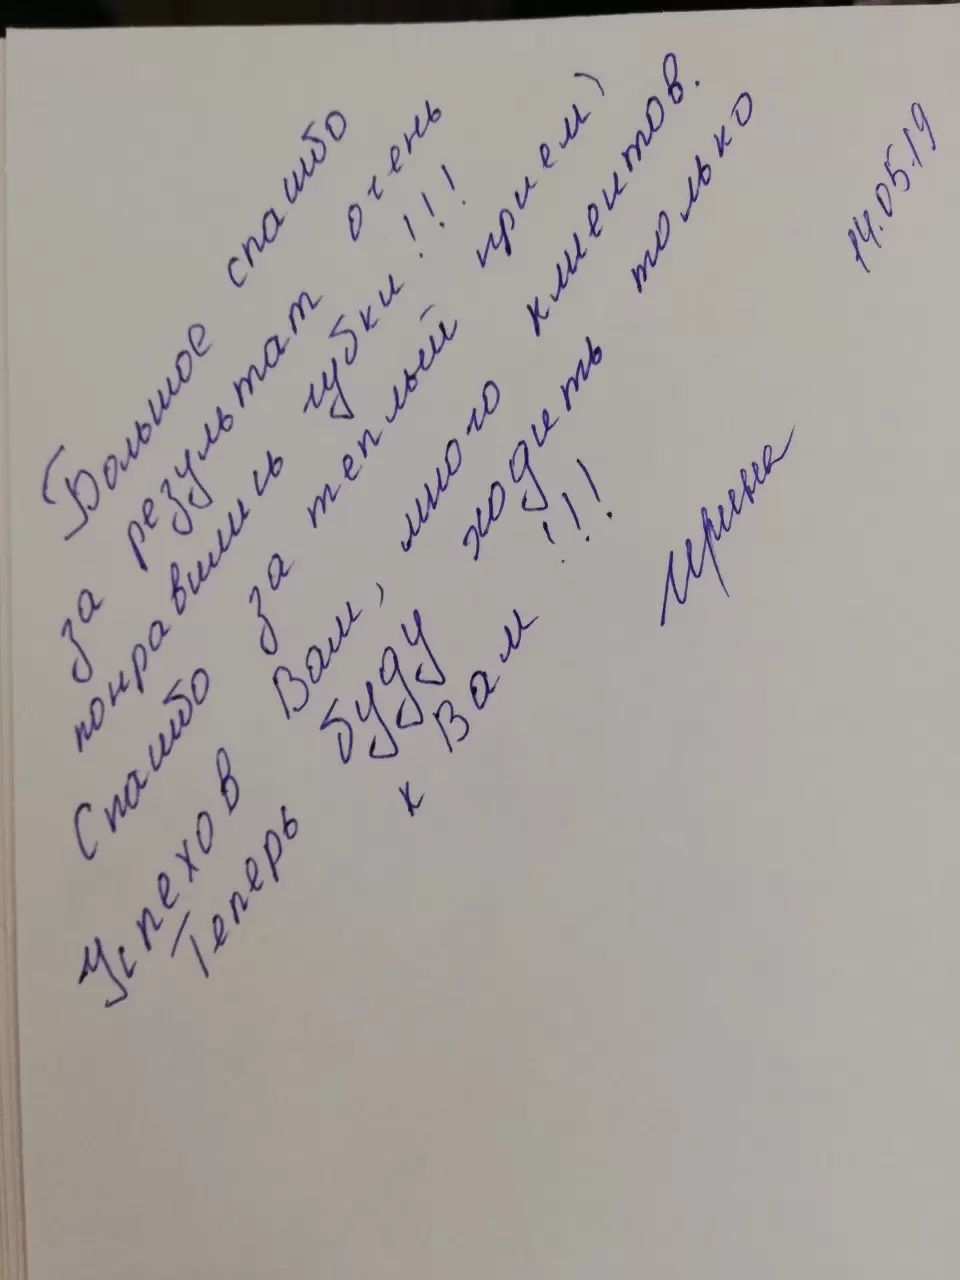 Большое спасибо
за результат очень
понравились губки!!!
Спасибо за теплый прием)
Успехов Вам, много клиентов.
Теперь буду ходить только
к Вам !!!
Ирина
14.05.19